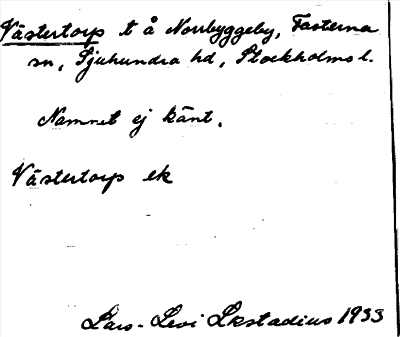 Västertorp t å Norrbyggeby, Fasterna
sn, Sjuhundra hd, Stockholms l.
Namnet ej känt.
Västertorp ek
Lars-Levi Læstadius 1933